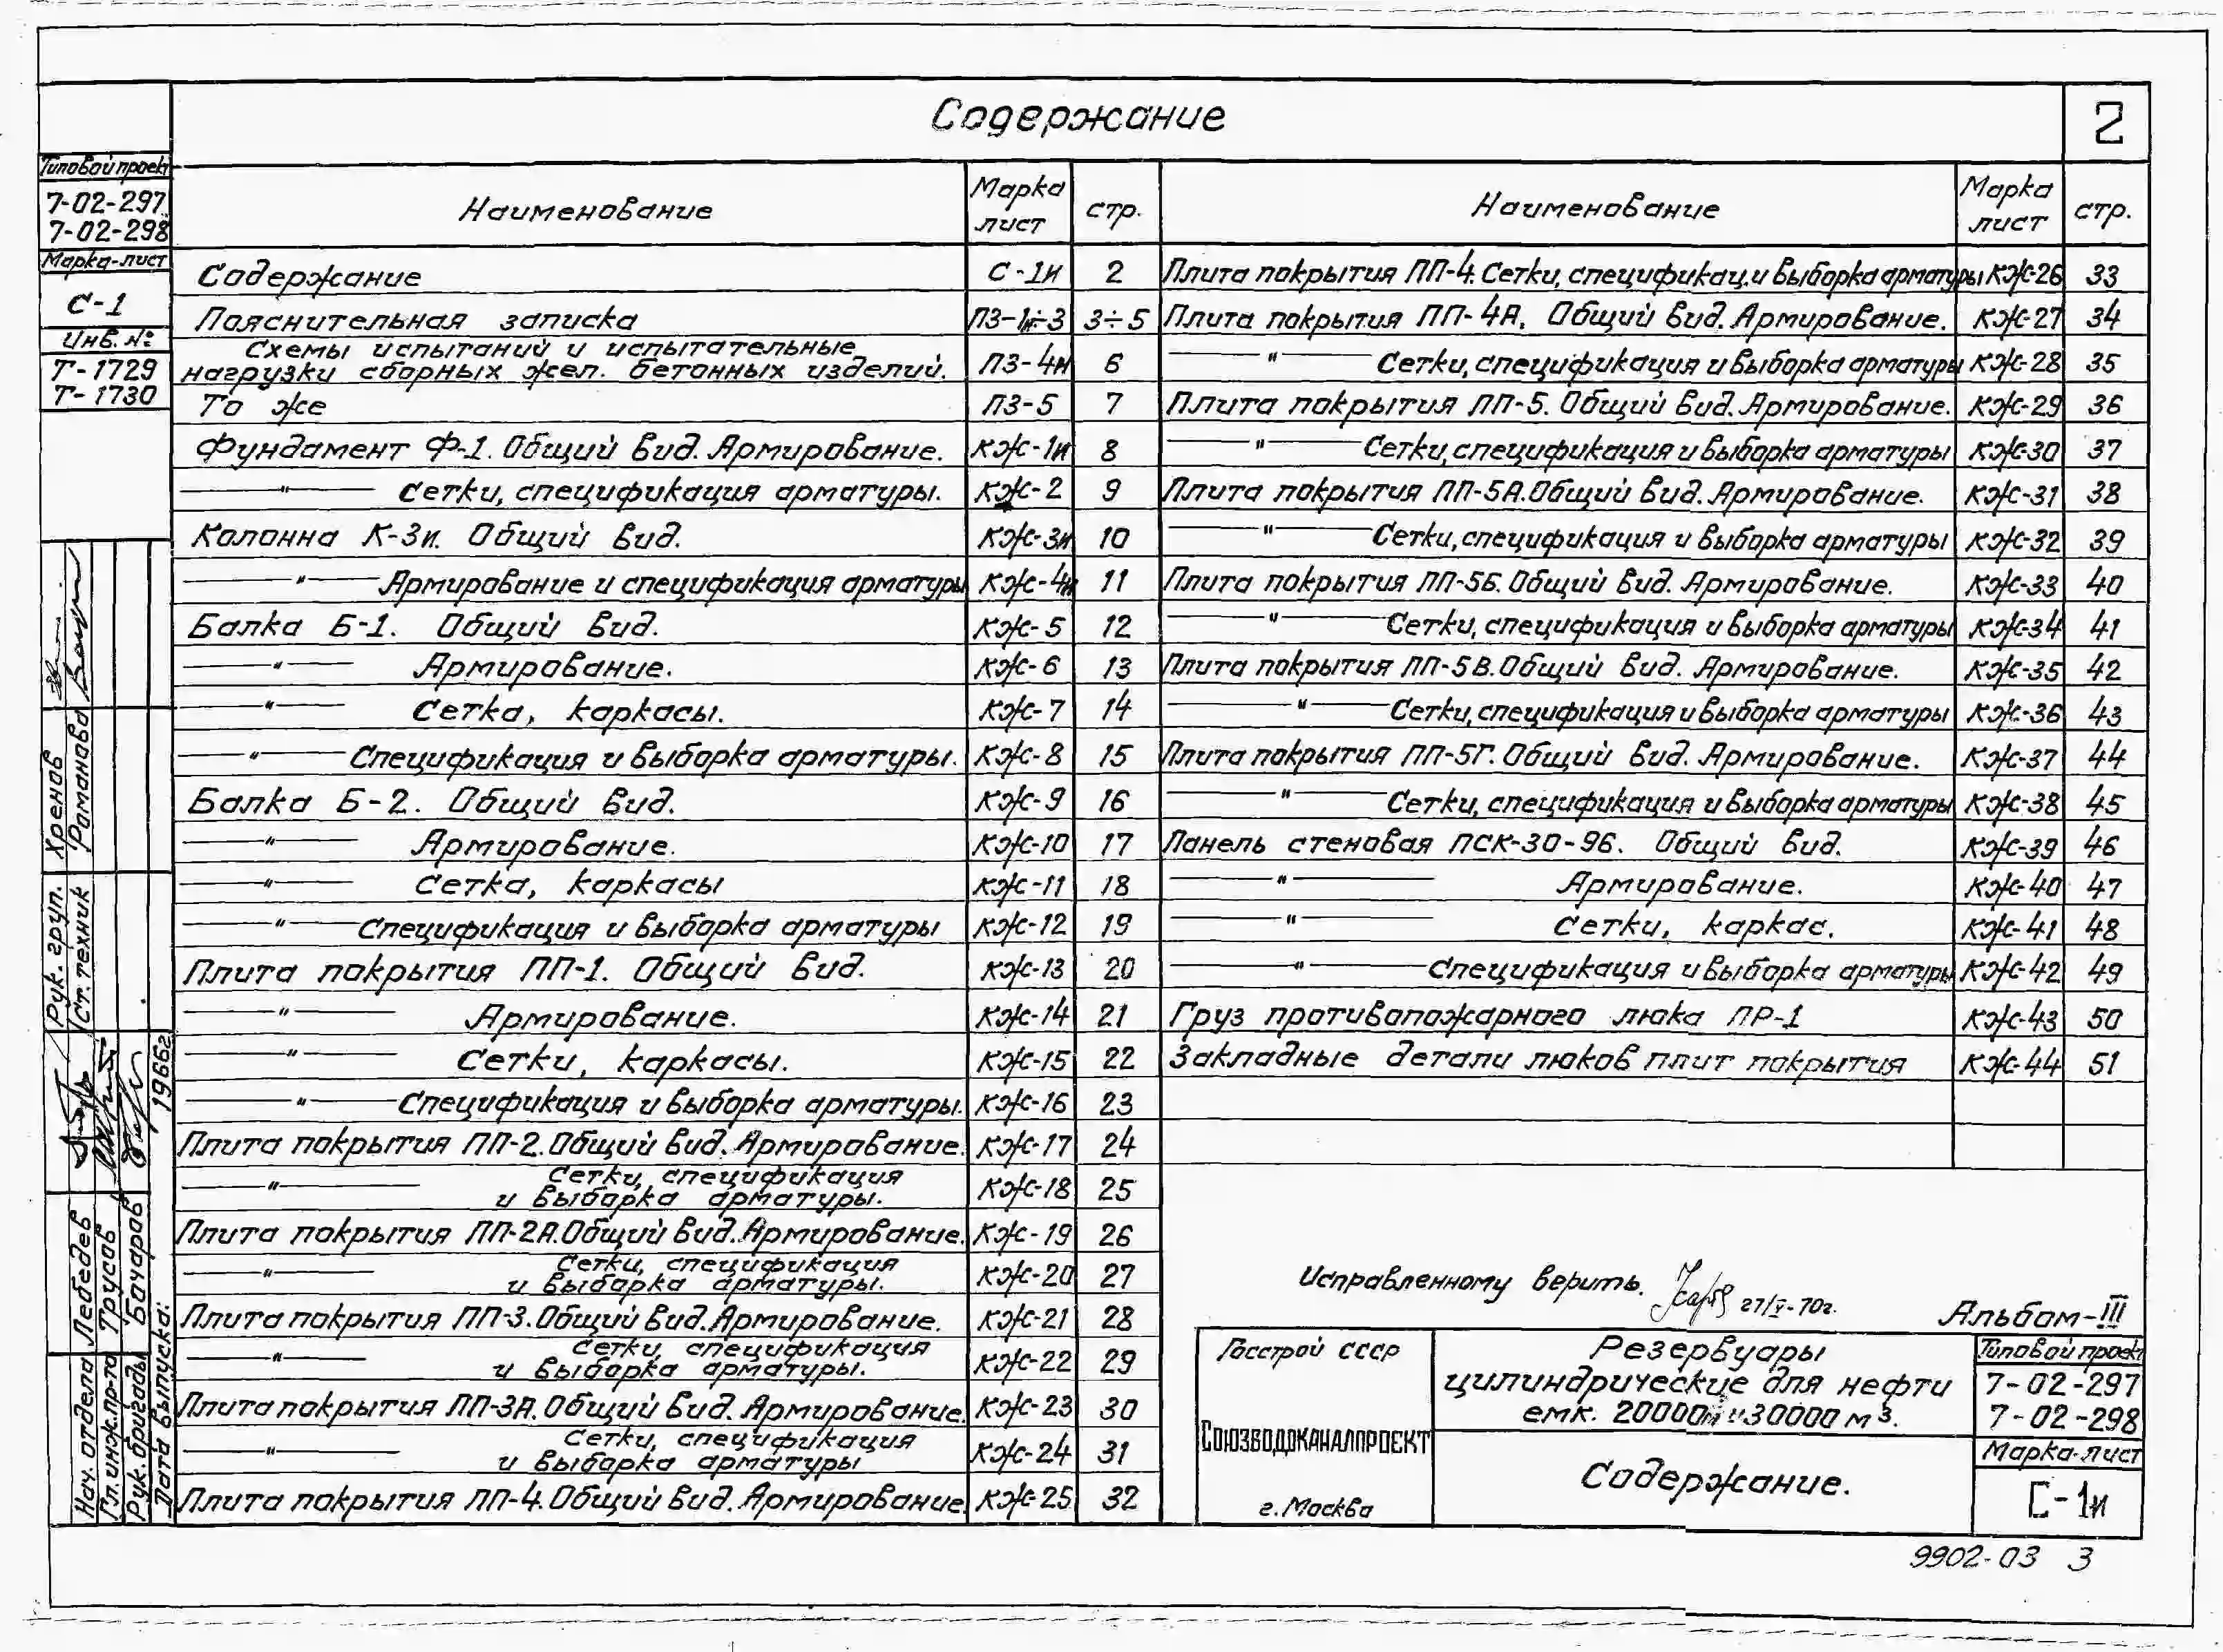 Содержание
2
Типовой проект
7-02-297
7-02-298
Марка-лист
С-1
Инв. №:
Т-1729
Т-1730
Наименование Марка лист стр.
Содержание С-1и 2
Пояснительная записка ПЗ-1и÷3 3÷5
Схемы испытаний и испытательные
нагрузки сборных жел. бетонных изделий. ПЗ-4и 6
То же ПЗ-5 7
Фундамент Ф-1. Общий вид. Армирование. КЖ-1и 8
—"— Сетки, спецификация арматуры. КЖ-2 9
Колонна К-3и. Общий вид. КЖ-3и 10
—"— Армирование и спецификация арматуры КЖ-4и 11
Балка Б-1. Общий вид. КЖ-5 12
—"— Армирование. КЖ-6 13
—"— Сетка, каркасы. КЖ-7 14
—"— Спецификация и выборка арматуры. КЖ-8 15
Балка Б-2. Общий вид. КЖ-9 16
—"— Армирование. КЖ-10 17
—"— Сетка, каркасы КЖ-11 18
—"— Спецификация и выборка арматуры КЖ-12 19
Плита покрытия ПП-1. Общий вид. КЖ-13 20
—"— Армирование. КЖ-14 21
—"— Сетки, каркасы. КЖ-15 22
—"— Спецификация и выборка арматуры. КЖ-16 23
Плита покрытия ПП-2. Общий вид. Армирование. КЖ-17 24
—"— Сетки, спецификация
и выборка арматуры. КЖ-18 25
Плита покрытия ПП-2А. Общий вид. Армирование. КЖ-19 26
—"— Сетки, спецификация
и выборка арматуры. КЖ-20 27
Плита покрытия ПП-3. Общий вид. Армирование. КЖ-21 28
—"— Сетки, спецификация
и выборка арматуры. КЖ-22 29
Плита покрытия ПП-3А. Общий вид. Армирование. КЖ-23 30
—"— Сетки, спецификация
и выборка арматуры КЖ-24 31
Плита покрытия ПП-4. Общий вид. Армирование. КЖ-25 32
Наименование Марка лист стр.
Плита покрытия ПП-4. Сетки, спецификац. и выборка арматуры КЖ-26 33
Плита покрытия ПП-4А. Общий вид. Армирование. КЖ-27 34
—"— Сетки, спецификация и выборка арматуры КЖ-28 35
Плита покрытия ПП-5. Общий вид. Армирование. КЖ-29 36
—"— Сетки, спецификация и выборка арматуры КЖ-30 37
Плита покрытия ПП-5А. Общий вид. Армирование. КЖ-31 38
—"— Сетки, спецификация и выборка арматуры КЖ-32 39
Плита покрытия ПП-5Б. Общий вид. Армирование. КЖ-33 40
—"— Сетки, спецификация и выборка арматуры КЖ-34 41
Плита покрытия ПП-5В. Общий вид. Армирование. КЖ-35 42
—"— Сетки, спецификация и выборка арматуры КЖ-36 43
Плита покрытия ПП-5Г. Общий вид. Армирование. КЖ-37 44
—"— Сетки, спецификация и выборка арматуры КЖ-38 45
Панель стеновая ПСК-30-96. Общий вид. КЖ-39 46
—"— Армирование. КЖ-40 47
—"— Сетки, каркас. КЖ-41 48
—"— Спецификация и выборка арматуры КЖ-42 49
Груз противопожарного люка ПР-1 КЖ-43 50
Закладные детали люков плит покрытия КЖ-44 51
Рук. груп. Хренов
Ст. техник Романова
Нач. отдела Лебедев
Гл. инж. пр-та Трусов
Рук. бригады Бочаров
Дата выпуска: 1966г
Исправленному верить. 27/V-70г.
Альбом-III
Госстрой СССР
СОЮЗВОДОКАНАЛПРОЕКТ
г. Москва
Резервуары
цилиндрические для нефти
емк. 20000м³ и 30000м³.
Содержание.
Типовой проект
7-02-297
7-02-298
Марка-лист
С-1и
9902-03 3